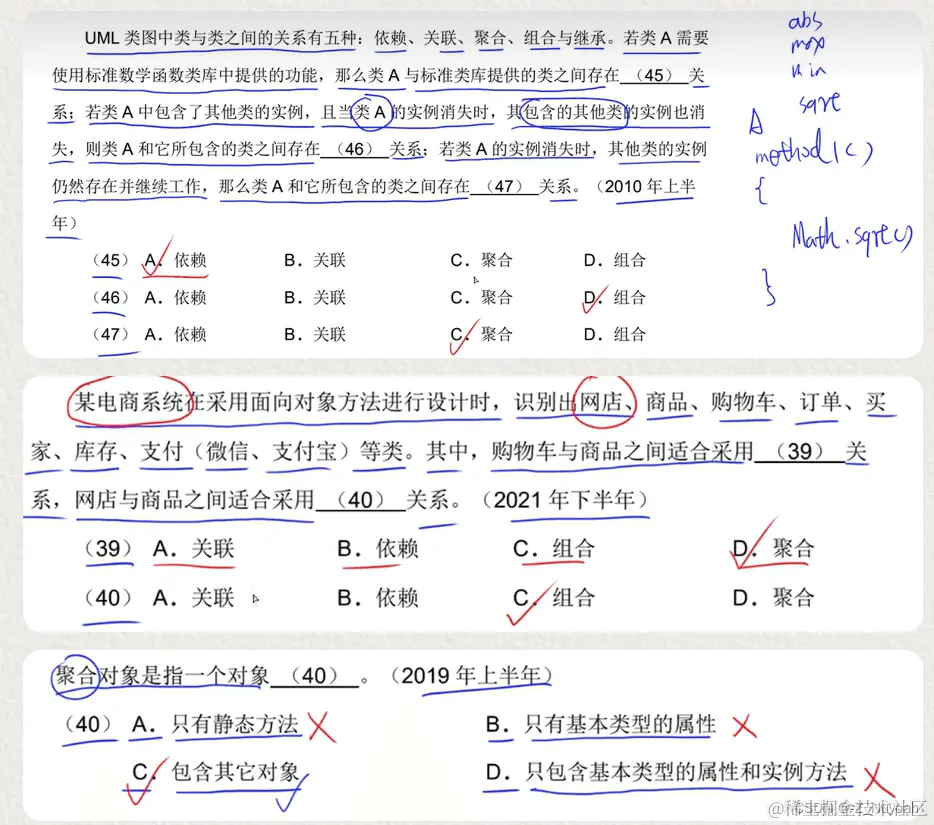 UML 类图中类与类之间的关系有五种：依赖、关联、聚合、组合与继承。若类 A 需要
使用标准数学函数类库中提供的功能，那么类 A 与标准类库提供的类之间存在（45）关
系；若类 A 中包含了其他类的实例，且当类 A 的实例消失时，其包含的其他类的实例也消
失，则类 A 和它所包含的类之间存在（46）关系；若类 A 的实例消失时，其他类的实例
仍然存在并继续工作，那么类 A 和它所包含的类之间存在（47）关系。（2010 年上半
年）
（45） A．依赖 B．关联 C．聚合 D．组合
（46） A．依赖 B．关联 C．聚合 D．组合
（47） A．依赖 B．关联 C．聚合 D．组合
abs
max
A
{
}
某电商系统在采用面向对象方法进行设计时，识别出网店、商品、购物车、订单、买
家、库存、支付（微信、支付宝）等类。其中，购物车与商品之间适合采用（39）关
系，网店与商品之间适合采用（40）关系。（2021 年下半年）
（39） A．关联 B．依赖 C．组合 D．聚合
（40） A．关联 B．依赖 C．组合 D．聚合
聚合对象是指一个对象（40）。（2019 年上半年）
（40） A．只有静态方法 B．只有基本类型的属性
C．包含其它对象 D．只包含基本类型的属性和实例方法